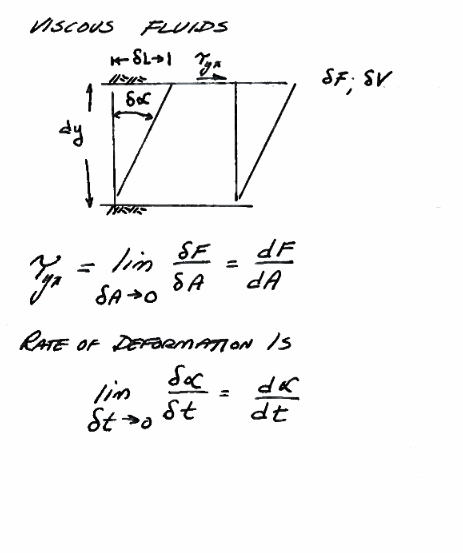 VISCOUS FLUIDS
δL τyx
δα δF; δV
dy
τyx = lim δF/δA = dF/dA
δA→0
RATE OF DEFORMATION IS
lim δα/δt = dα/dt
δt→0